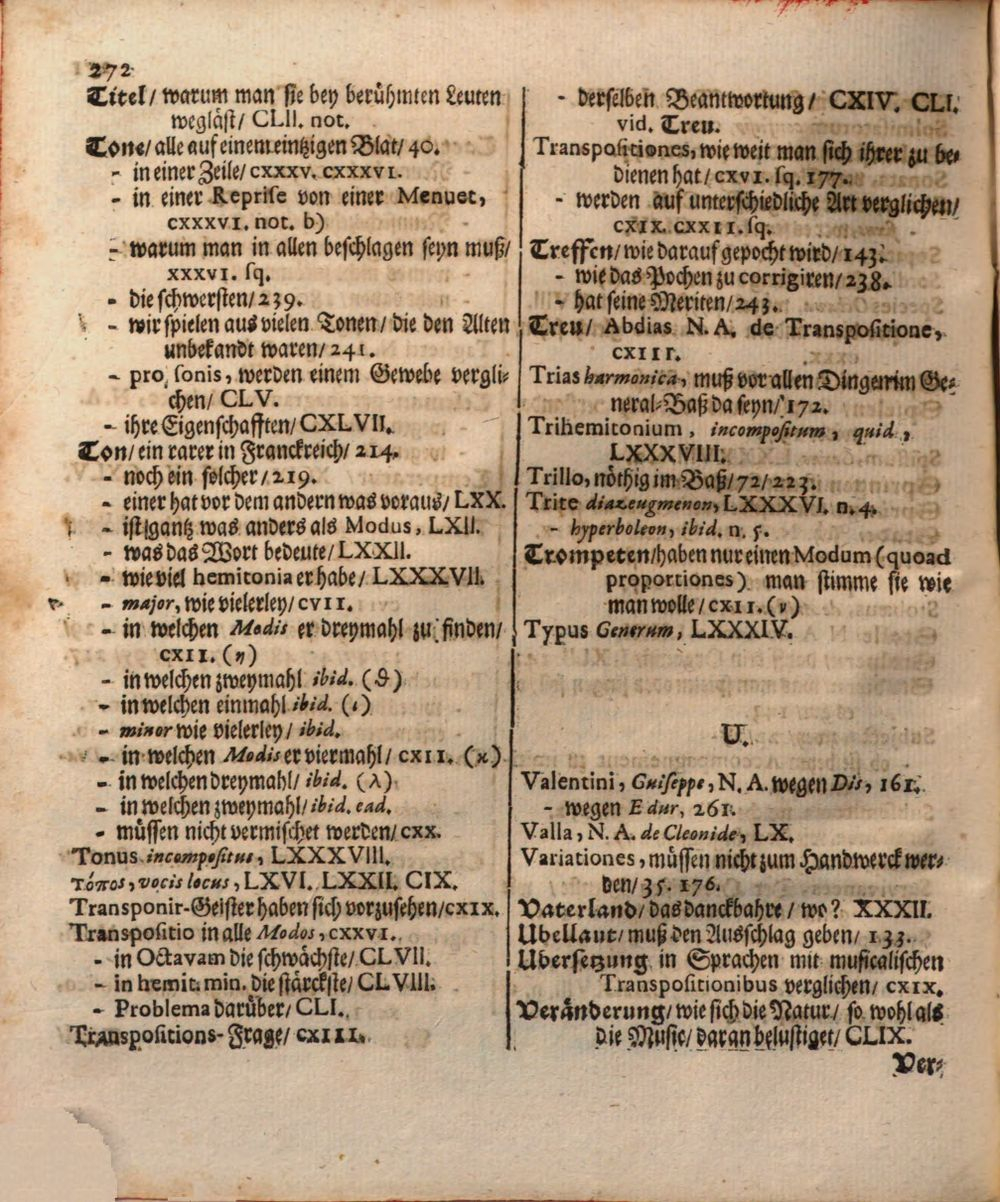 272
Titel/ warum man sie bey berühmten Leuten
wegläst/ CLII. not.
Tone/ alle auf einem eintzigen Blat/ 40.
- in einer Zeile/ CXXXV. CXXXVI.
- in einer Reprise von einer Menuet,
CXXXVI. not. b)
- warum man in allen beschlagen seyn muß/
XXXVI. sq.
- die schwersten/ 239.
- wir spielen aus vielen Tonen/ die den Alten
unbekandt waren/ 241.
- pro sonis, werden einem Gewebe vergli-
chen/ CLV.
- ihre Eigenschafften/ CXLVII.
Ton/ ein rarer in Franckreich/ 214.
- noch ein solcher/ 219.
- einer hat vor dem andern was voraus/ LXX.
- ist gantz was anders als Modus, LXII.
- was das Wort bedeute/ LXXII.
- wie viel hemitonia er habe/ LXXXVII.
- major, wie vielerley/ CVII.
- in welchen Modis er dreymahl zu finden/
CXII. (η)
- in welchen zweymahl ibid. (ϑ)
- in welchen einmahl ibid. (ι)
- minor wie vielerley/ ibid.
- in welchen Modis er viermahl/ CXII. (κ)
- in welchen dreymahl/ ibid. (λ)
- in welchen zweymahl/ ibid. ead.
- müssen nicht vermischet werden/ CXX.
Tonus incompositus, LXXXVIII.
τόπος, vocis locus, LXVI. LXXII. CIX.
Transponir-Geister haben sich vorzusehen/ CXIX.
Transpositio in alle Modos, CXXVI.
- in Octavam die schwächste/ CLVII.
- in hemit. min. die stärckste/ CLVIII.
- Problema darüber/ CLI.
Transpositions-Frage/ CXIII.
- derselben Beantwortung/ CXIV. CLI.
vid. Treu.
Transpositiones, wie weit man sich ihrer zu be-
dienen hat/ CXVI. sq. 177.
- werden auf unterschiedliche Art verglichen/
CXIX. CXXII. sq.
Treffen/ wie darauf gepocht wird/ 143.
- wie das Pochen zu corrigiren/ 238.
- hat seine Meriten/ 243.
Treu/ Abdias N. A. de Transpositione,
CXIII.
Trias harmonica, muß vor allen Dingen im Ge-
neral-Baß da seyn/ 172.
Trihemitonium, incompositum, quid,
LXXXVIII.
Trillo, nöthig im Baß/ 72/ 223.
Trite diazeugmenon, LXXXVI. n. 4.
- hyperboleon, ibid. n. 5.
Trompeten/ haben nur einen Modum (quoad
proportiones) man stimme sie wie
man wolle/ CXII. (ν)
Typus Generum, LXXXIV.
U.
Valentini, Guiseppe, N. A. wegen Dis, 161.
- wegen E dur, 261.
Valla, N. A. de Cleonide, LX.
Variationes, müssen nicht zum Handwerck wer-
den/ 35. 176.
Vaterland/ das danckbahre/ wo? XXXII.
Ubellaut/ muß den Ausschlag geben/ 133.
Ubersetzung in Sprachen mit musicalischen
Transpositionibus verglichen/ CXIX.
Veränderung/ wie sich die Natur/ so wohl als
die Music/ daran belustiget/ CLIX.
Ver-